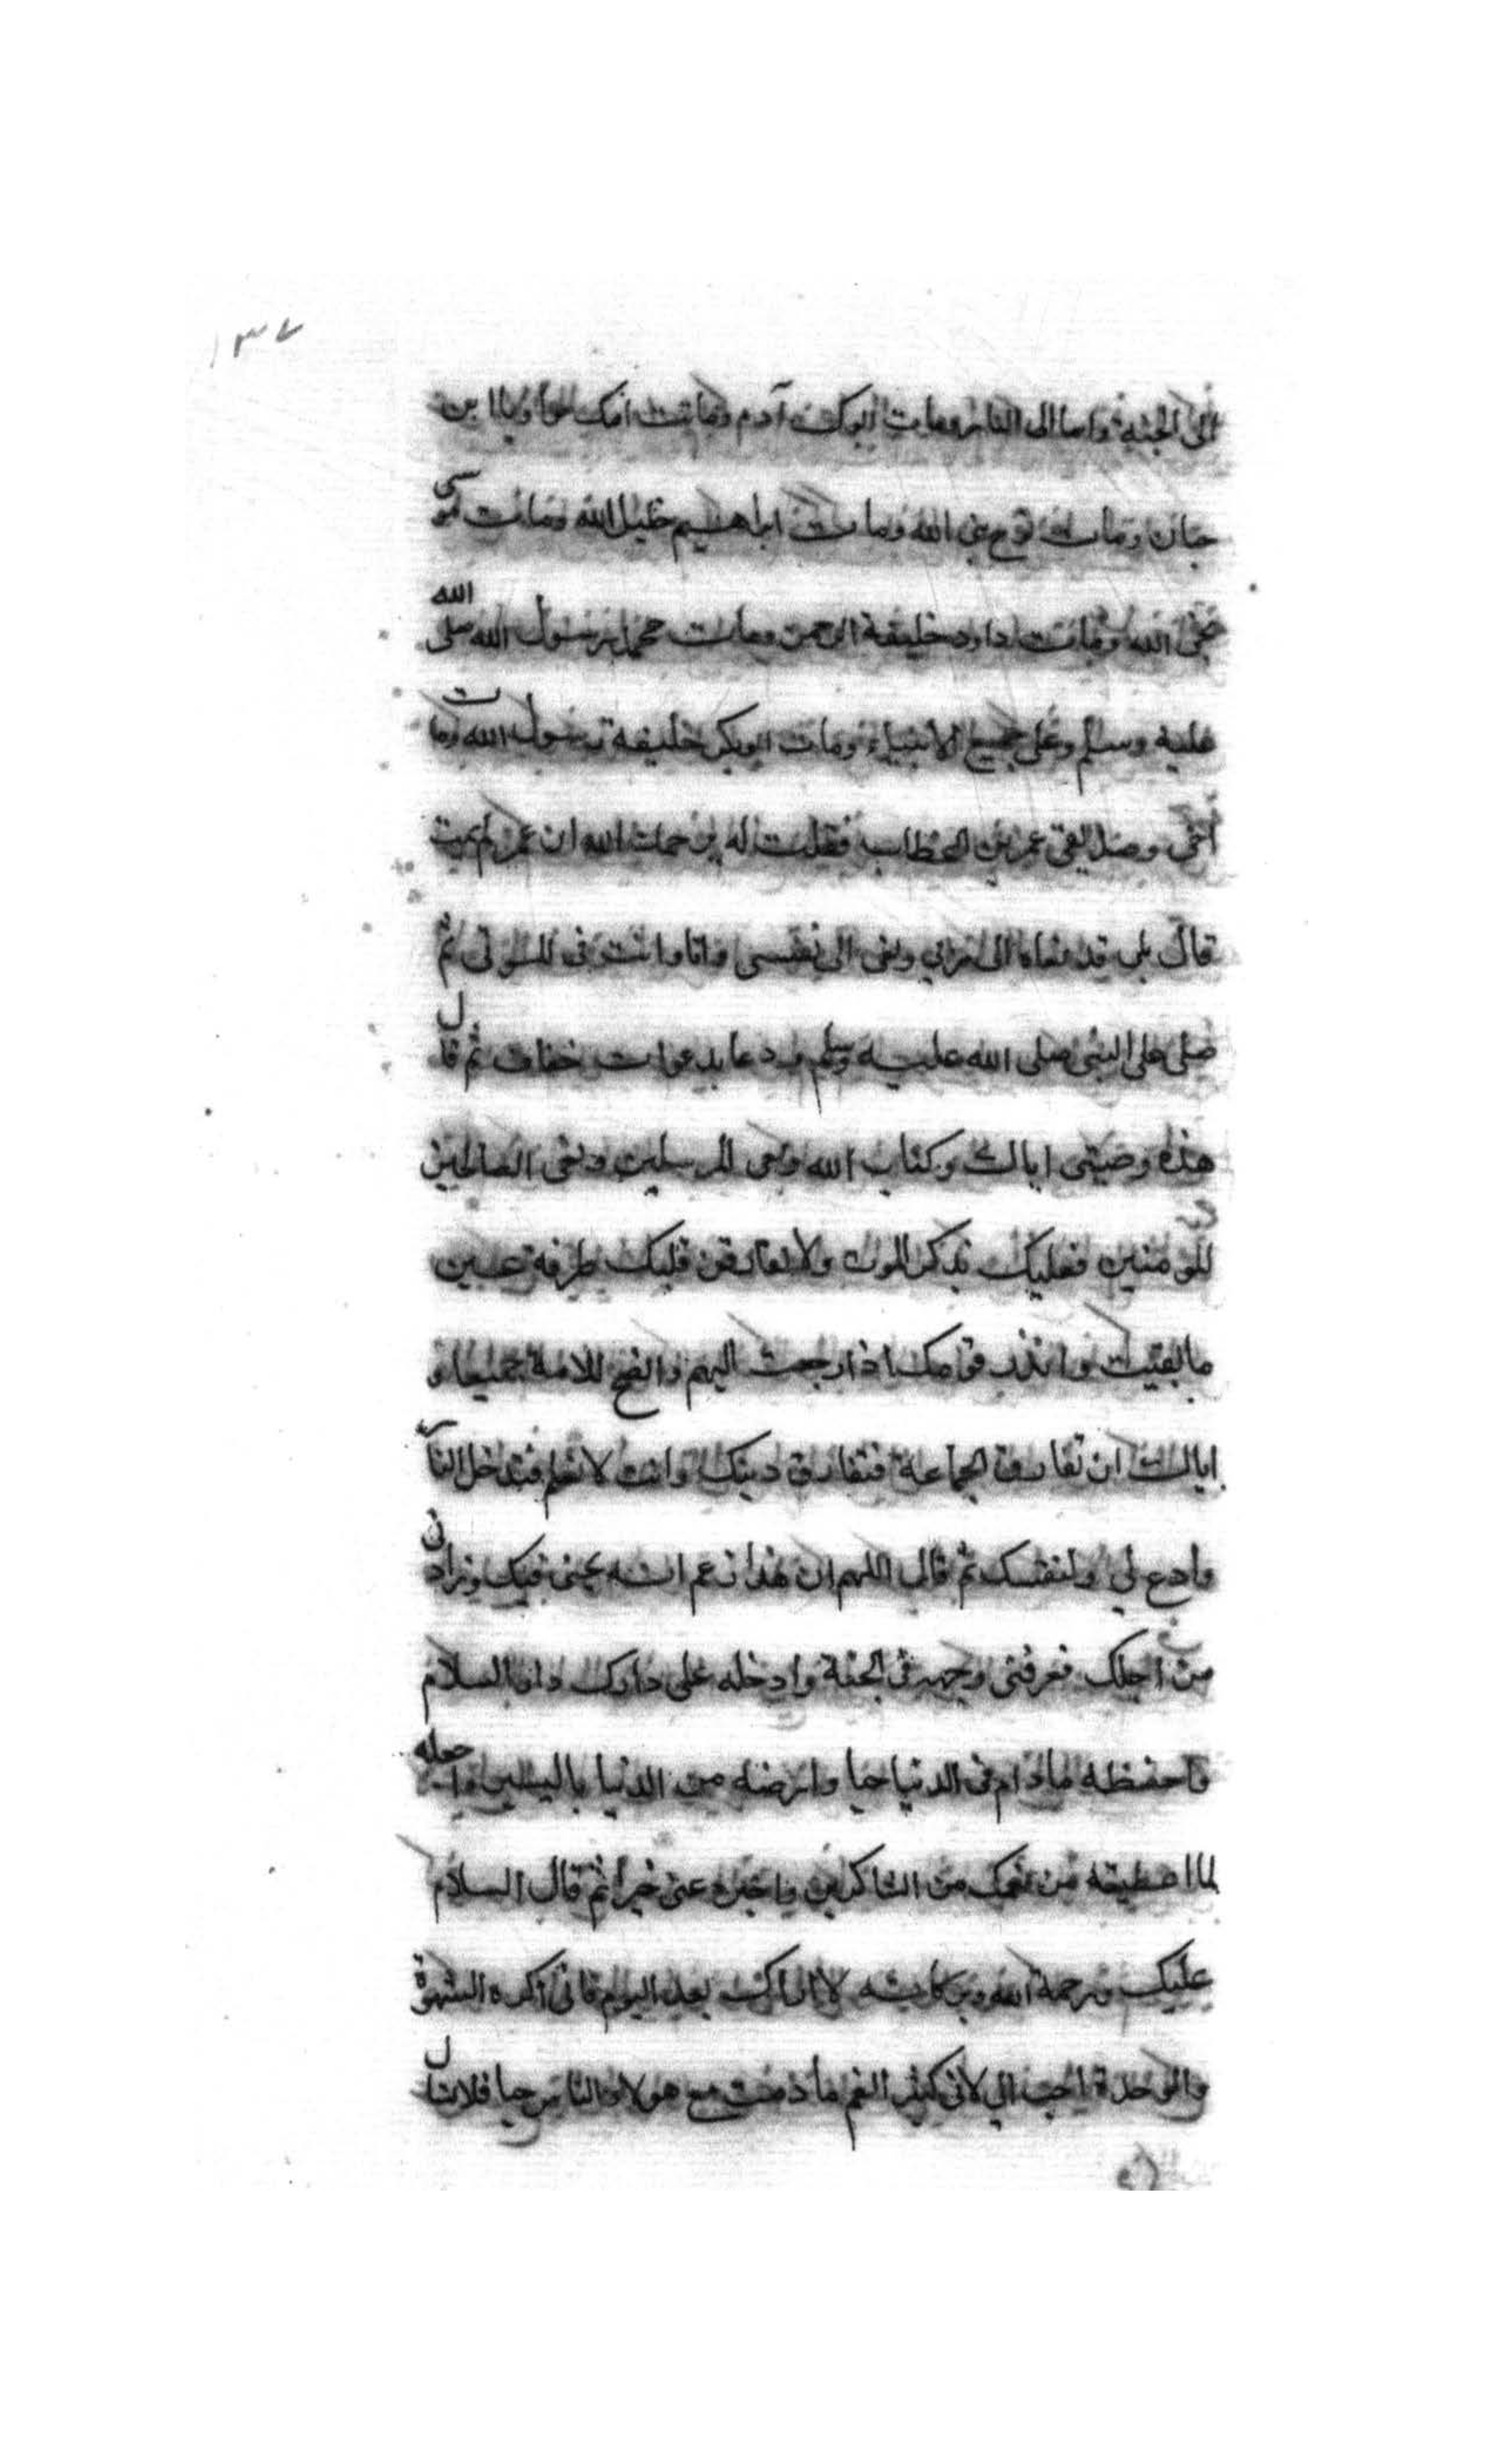 ١٣٧
الى الجنة واما الى النار ومات ابوك آدم وماتت امك حوا ويا ابن
حيان ومات نوح نبي الله ومات ابراهيم خليل الله ومات موسى
نجى الله ومات داود خليفة الرحمن ومات محمد رسول الله صلى الله
عليه وسلم وعلى جميع الانبياء ومات ابوبكر خليفة رسول الله ومات
اخى وصديقى عمر بن الخطاب فقلت له يرحمك الله ان عمر لم يمت
قال بلى قد نعاه الى ربي ونعى الى نفسى وانا وانت فى الموتى ثم
صلى على النبى صلى الله عليه وسلم ودعا بدعوات خفاف ثم قال
هذه وصيتى اياك وكتاب الله ونعى المرسلين ونعى الصالحين
المومنين فعليك بذكر الموت ولا يفارقن قلبك طرفة عين
ما بقيت وانذر قومك اذا رجعت اليهم وانصح للامة جميعا و
اياك ان تفارق الجماعة فتفارق دينك وانت لا تعلم فتدخل النار
وادع لي ولنفسك ثم قال اللهم ان هذا زعم انه يحبنى فيك وزارنى
من اجلك فعرفنى وجهه فى الجنة وادخله على دارك دار السلام
واحفظه ما دام فى الدنيا حيا وارضه من الدنيا باليسير واجعله
لما اعطيته من نعمك من الشاكرين واجزه عنى خيرا ثم قال السلام
عليك ورحمة الله وبركاته لا اراك بعد اليوم فانى اكره الشهرة
والوحدة احب الي لانى كثير الغم ما دمت مع هولاء الناس حيا فلا تسال